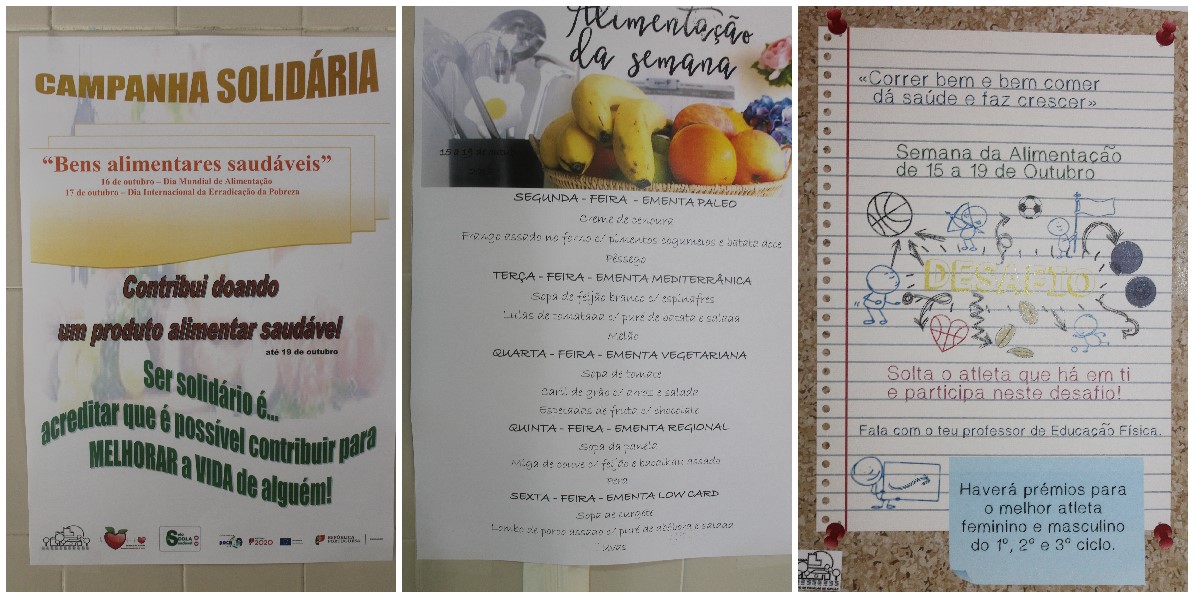 CAMPANHA SOLIDÁRIA
"Bens alimentares saudáveis"
16 de outubro – Dia Mundial de Alimentação
17 de outubro – Dia Internacional da Erradicação da Pobreza
Contribui doando
um produto alimentar saudável
até 19 de outubro
Ser solidário é...
acreditar que é possível contribuir para
MELHORAR a VIDA de alguém!
2020
REPÚBLICA
PORTUGUESA
Alimentação
da semana
15 a 19 de
SEGUNDA - FEIRA - EMENTA PALEO
Creme de cenoura
Frango assado no forno c/ pimentos cogumelos e batata doce
Pêssego
TERÇA - FEIRA - EMENTA MEDITERRÂNICA
Sopa de feijão branco c/ espinafres
Lulas de tomatada c/ puré de batata e salada
Melão
QUARTA - FEIRA - EMENTA VEGETARIANA
Sopa de tomate
Caril de grão c/ arroz e salada
Espetadas de fruta c/ chocolate
QUINTA - FEIRA - EMENTA REGIONAL
Sopa da panela
Miga de couve c/ feijão e bacalhau assado
Pera
SEXTA - FEIRA - EMENTA LOW CARD
Sopa de curgete
Lombo de porco assado c/ puré de abóbora e salada
Uvas
«Correr bem e bem comer
dá saúde e faz crescer»
Semana da Alimentação
de 15 a 19 de Outubro
DESAFIO
Solta o atleta que há em ti
e participa neste desafio!
Fala com o teu professor de Educação Física.
Haverá prémios para
o melhor atleta
feminino e masculino
do 1º, 2º e 3º ciclo.